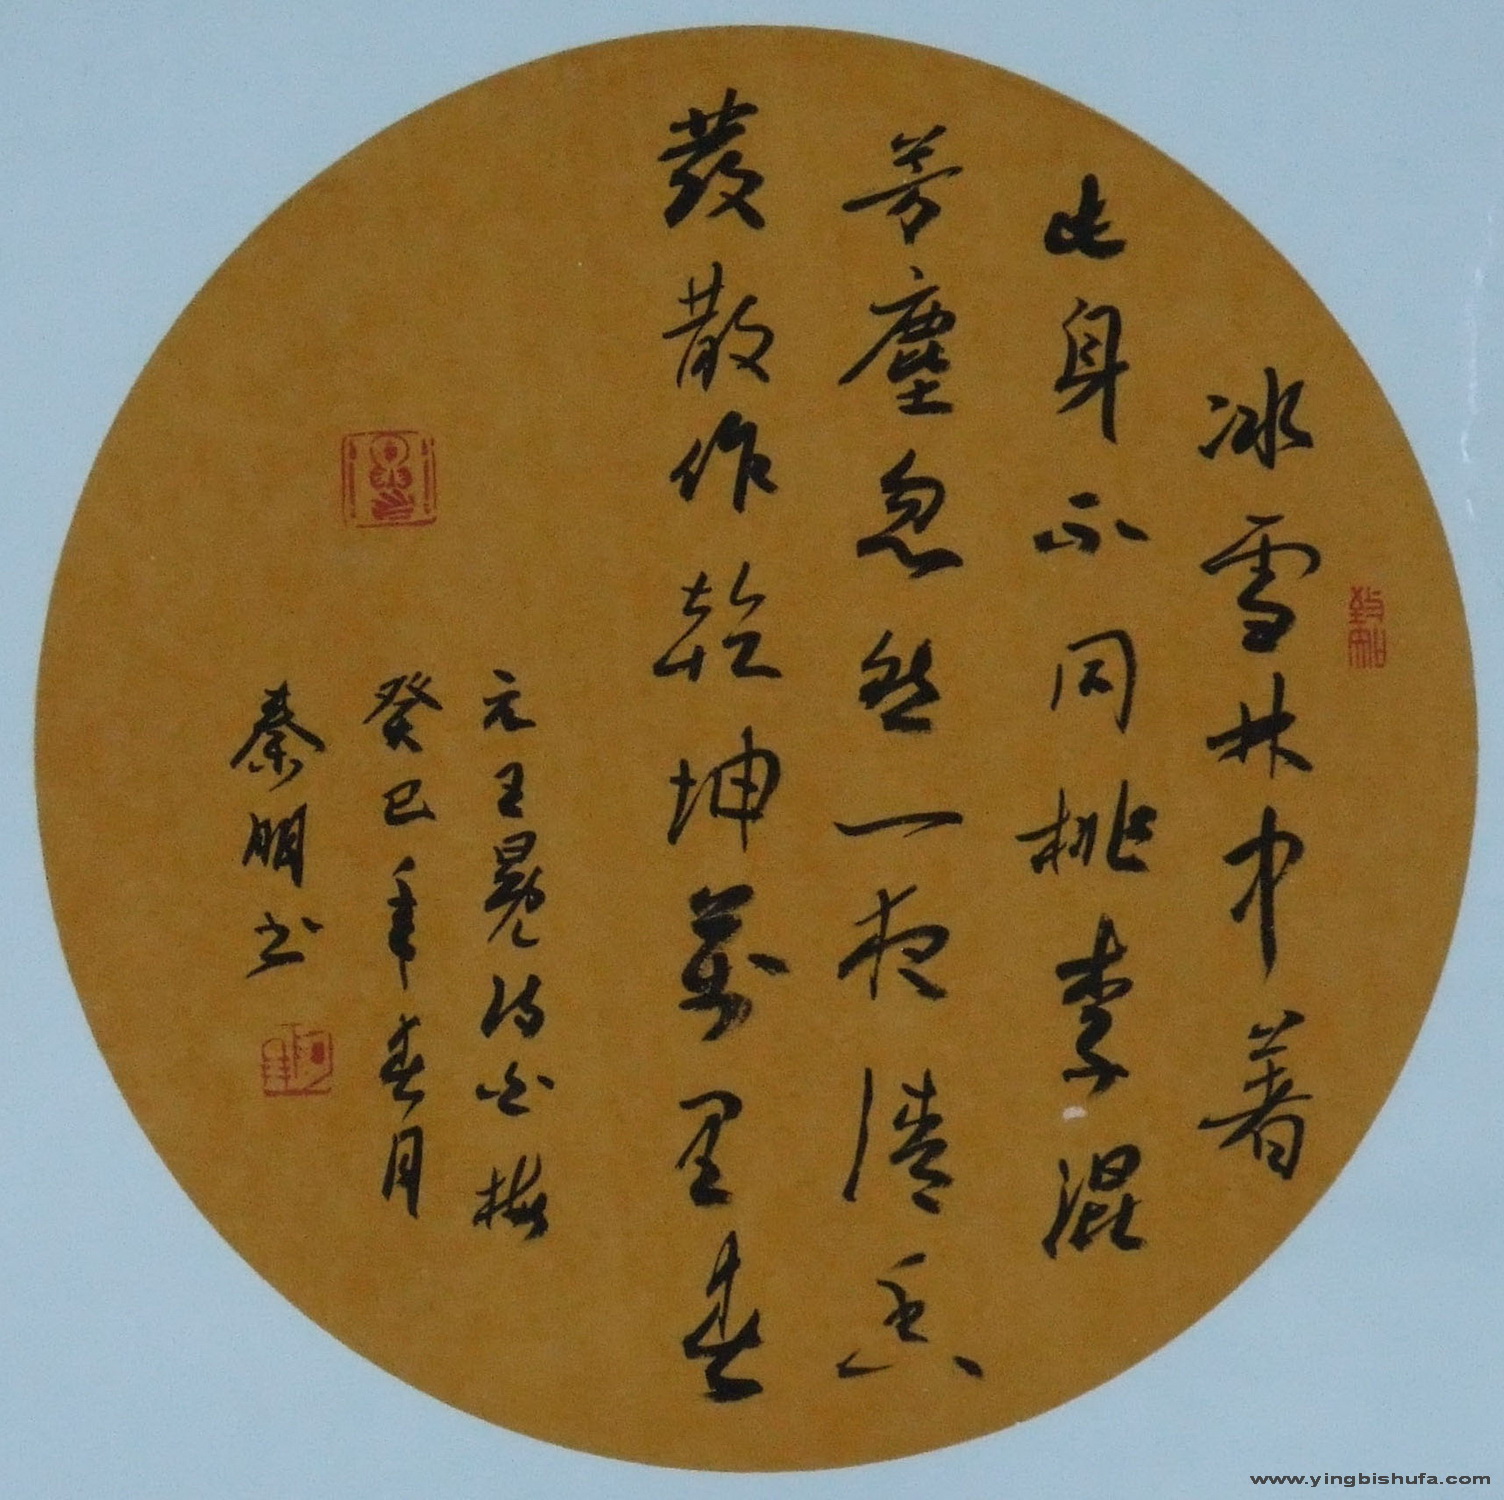 冰雪林中著
此身不同桃李混
芳塵忽然一夜清香
發散作乾坤萬里春
元王冕诗白梅
癸巳年春月
秦明书
www.yingbishufa.com